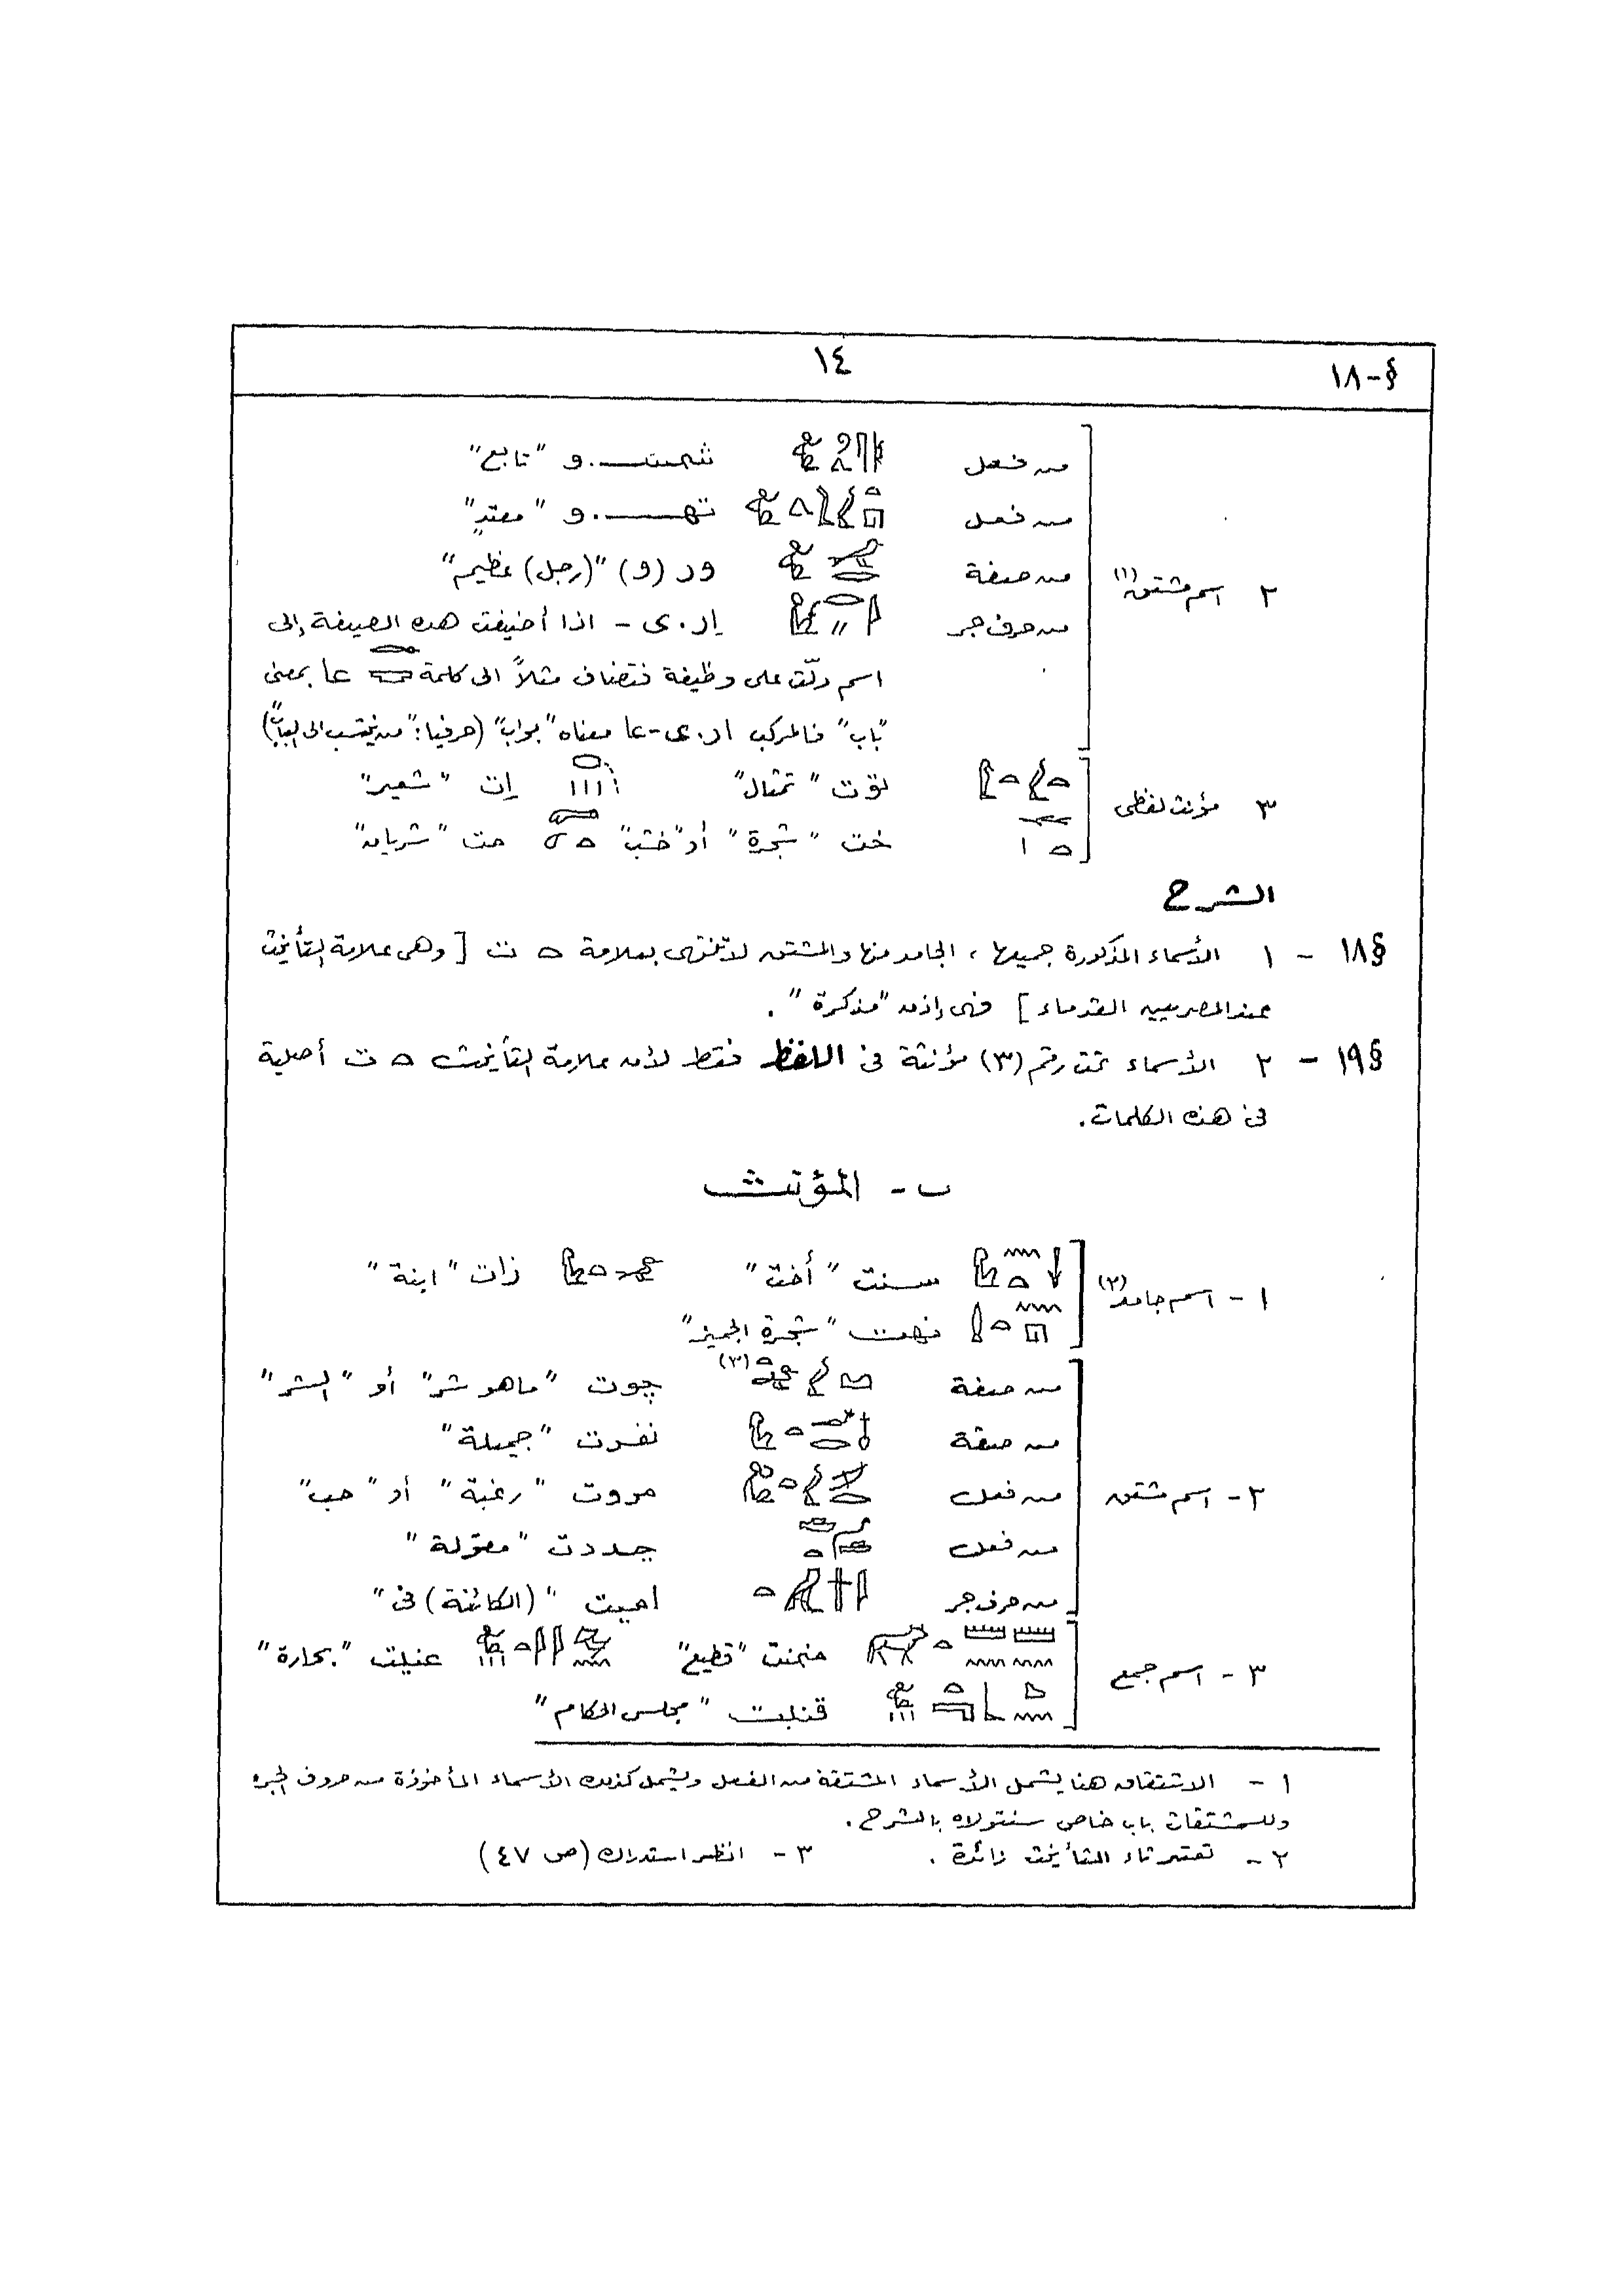 §-١٨
١٤
من فعل شمسـ.و "تابع"
من فعل تهـ.و "معتدٍ"
٢ اسم مشتق(١) من صفة ور (و) "(رجل) عظيم"
من حرف جر إر.ى - اذا أضيفت هذه الصيغة إلى
اسم دلّت على وظيفة فتضاف مثلاً الى كلمة عا بمعنى
"باب" فالمركب ار.ى-عا معناه "بواب" (حرفيا: "من ينتسب الى الباب")
توّت "تمثال" إت "شعير"
٣ مؤنث لفظى
خت "شجرة" أو "خشب" مت "شريان"
الشرح
§١٨ - ١ الأسماء المذكورة جميعها، الجامد منها والمشتق لا تنتهى بعلامة ت [وهى علامة التأنيث
عند المصريين القدماء] فهى إذن "مذكرة".
§١٩ - ٢ الأسماء تحت رقم (٣) مؤنثة فى اللفظ فقط لأن علامة التأنيث ت أصلية
فى هذه الكلمات.
ب - المؤنث
سنت "أخت" زات "ابنة"
١ - اسم جامد(٢)
نهت "شجرة الجميز"
من صفة (٣) چوت "ماهو شر" أو "الشر"
من صفة نفرت "جميلة"
٢ - اسم مشتق من فعل مروت "رغبة" أو "حب"
من فعل جددت "مقولة"
من حرف جر اميت "(الكائنة) فى"
منمنت "قطيع" غنيت "بحارة"
٣ - اسم جمع
قنبت "مجلس الحكام"
١ - الاشتقاق هنا يشمل الأسماء المشتقة من الفعل ويشمل كذلك الأسماء المأخوذة من حروف الجر
وللمشتقات باب خاص سنتولاه بالشرح.
٢ - تعتبر تاء التأنيث زائدة. ٣ - انظر استدراك (ص ٤٧)